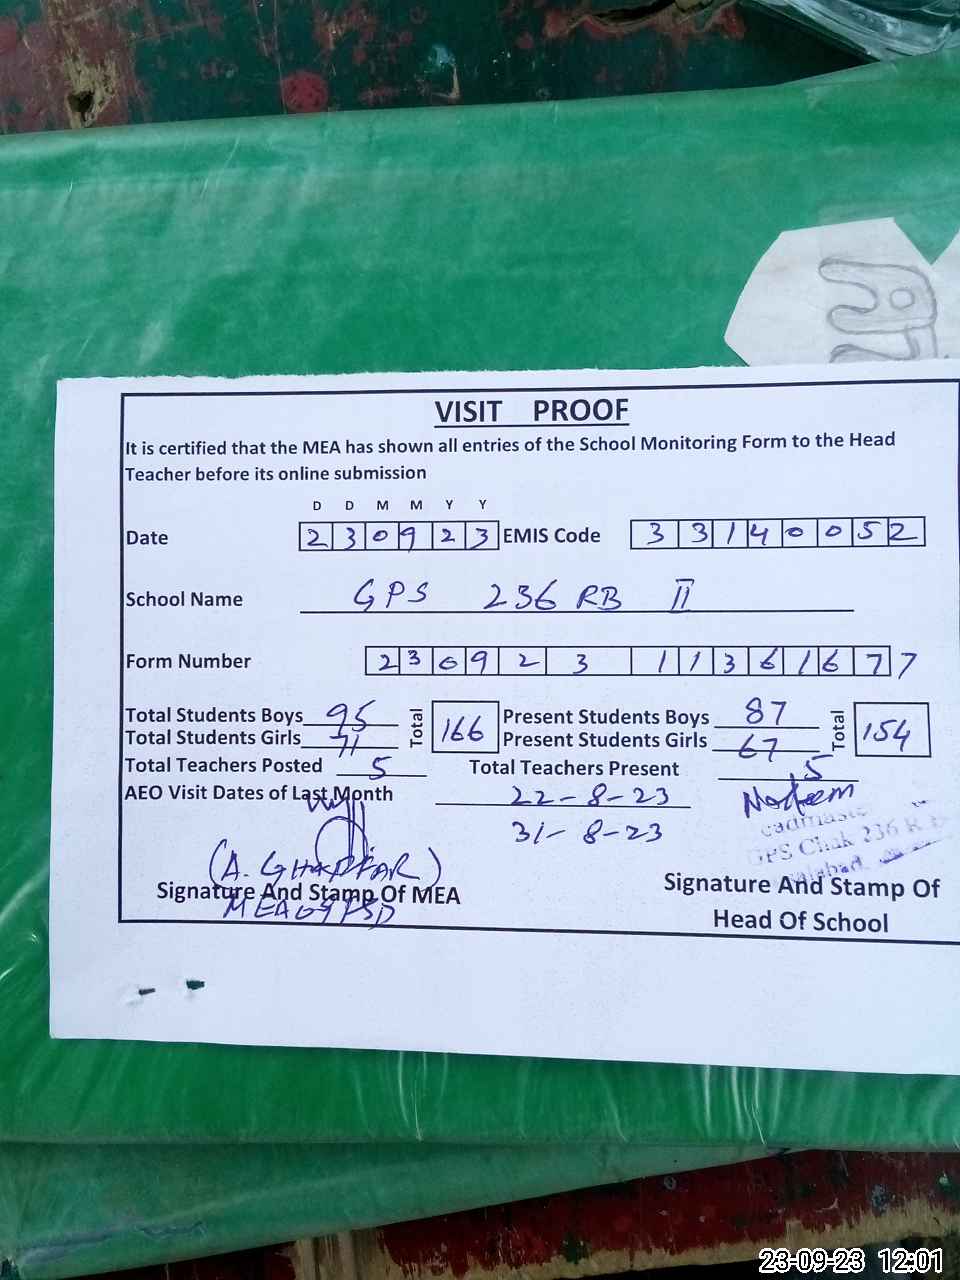 VISIT PROOF
It is certified that the MEA has shown all entries of the School Monitoring Form to the Head
Teacher before its online submission
D D M M Y Y
Date 2 3 0 9 2 3 EMIS Code 3 3 1 4 0 0 5 2
School Name GPS 236 RB II
Form Number 2 3 0 9 2 3 1 1 3 6 1 6 7 7
Total Students Boys 95 Total 166 Present Students Boys 87 Total 154
Total Students Girls 71 Present Students Girls 67
Total Teachers Posted 5 Total Teachers Present 5
AEO Visit Dates of Last Month 22-8-23
31-8-23
Nadeem
GPS Chak 236 R.B
(A. GHAFFAR)
Signature And Stamp Of MEA
Signature And Stamp Of
Head Of School
23-09-23 12:01